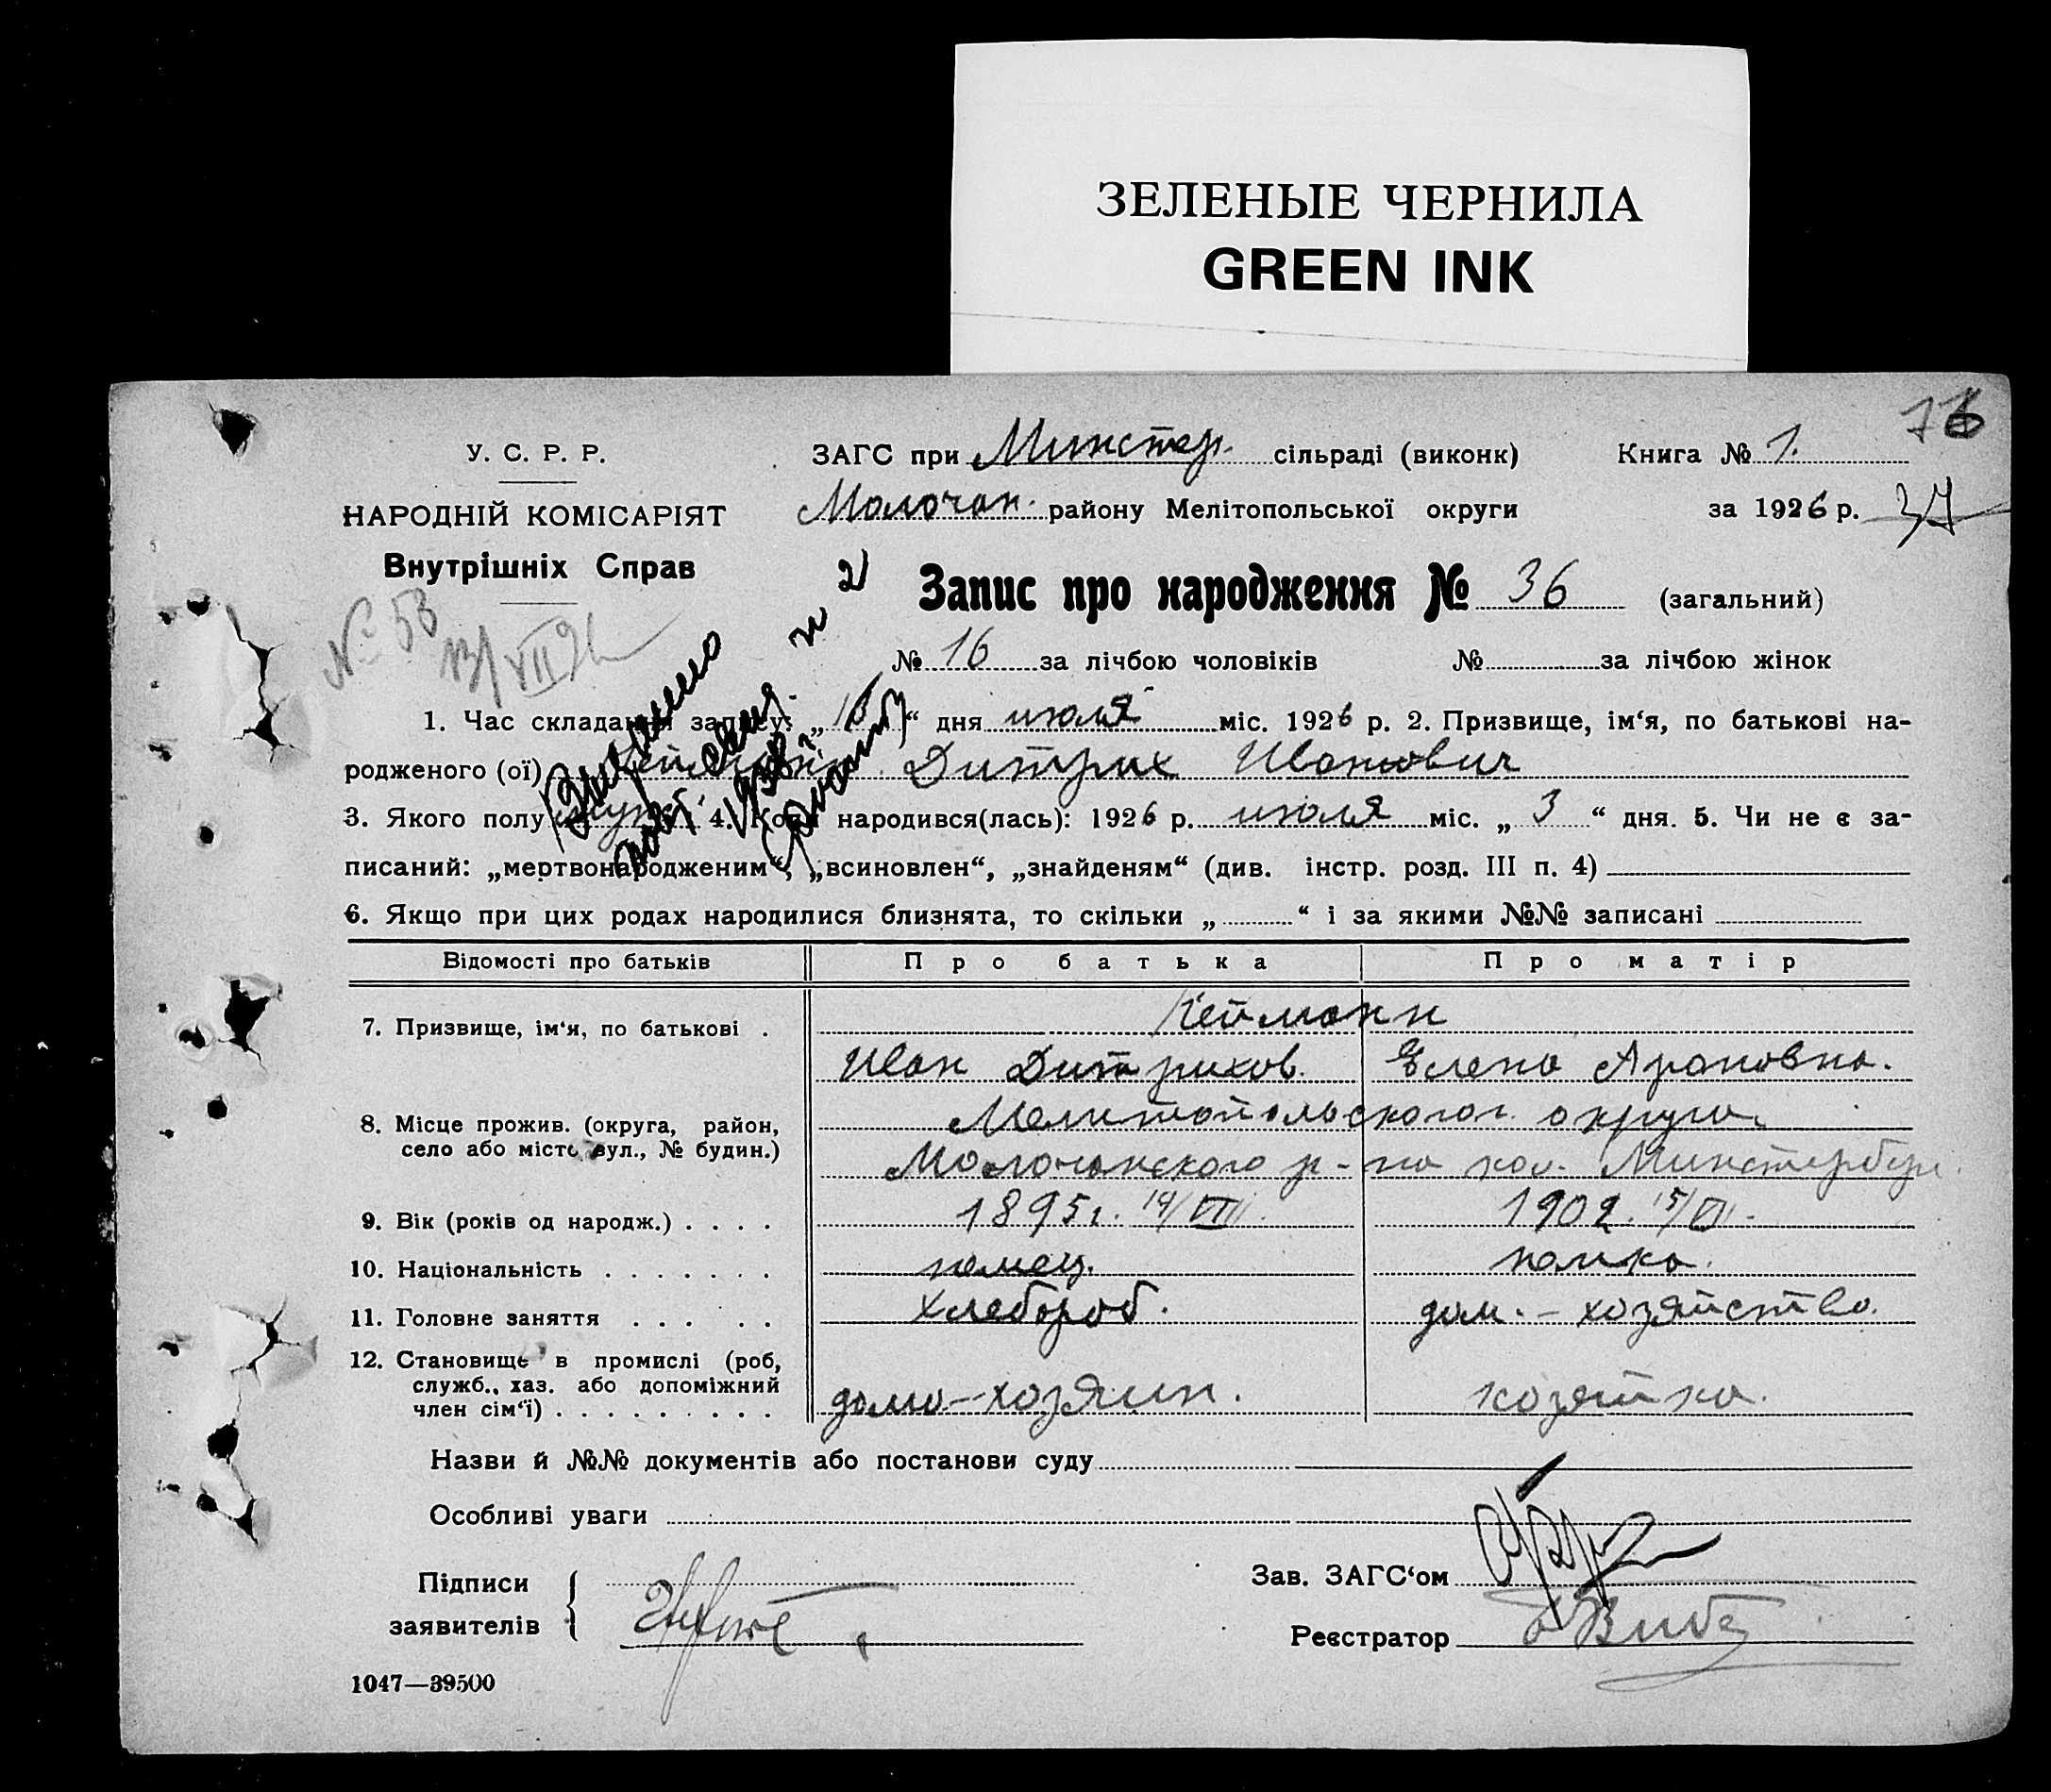 ЗЕЛЕНЫЕ ЧЕРНИЛА
GREEN INK
76
У. С. Р. Р.
НАРОДНІЙ КОМІСАРІЯТ
Внутрішніх Справ
ЗАГС при Минстер. сільраді (виконк)
Книга № 1.
Молочан. району Мелітопольської округи
за 1926 р. 37
Запис про народження № 36 (загальний)
№ 53
13/VII 26
№ 16 за лічбою чоловіків № за лічбою жінок
1. Час складання запису: „13“ дня июля міс. 1926 р. 2. Призвище, ім‘я, по батькові на-
родженого (ої) Дитрих Иванович
3. Якого полу муж. 4. Коли народився(лась): 1926 р. июля міс. „ 3 “ дня. 5. Чи не є за-
писаний: „мертвонародженим“, „всиновлен“, „знайденям“ (див. інстр. розд. III п. 4)
6. Якщо при цих родах народилися близнята, то скільки „ “ і за якими №№ записані
Відомості про батьків Про батька Про матір
7. Призвище, ім‘я, по батькові .
Иван Дитрихов. Елена Ароновна.
8. Місце прожив. (округа, район,
село або місто вул., № будин.)
Мелитопольского округа
Молочанского р-на кол. Минстербер.
9. Вік (років од народж.) . . . . 1895г. 14/VIII. 1902. 15/VI.
10. Національність . . . . . . . немец. немка.
11. Головне заняття . . . . . хлебороб. дом.-хозяйство.
12. Становище в промислі (роб,
служб., хаз. або допоміжний
член сім‘ї) . . . . . . . . . домо-хозяин. хозяйка.
Назви й №№ документів або постанови суду
Особливі уваги
Підписи
заявителів
Зав. ЗАГС‘ом
Реєстратор
1047—39500